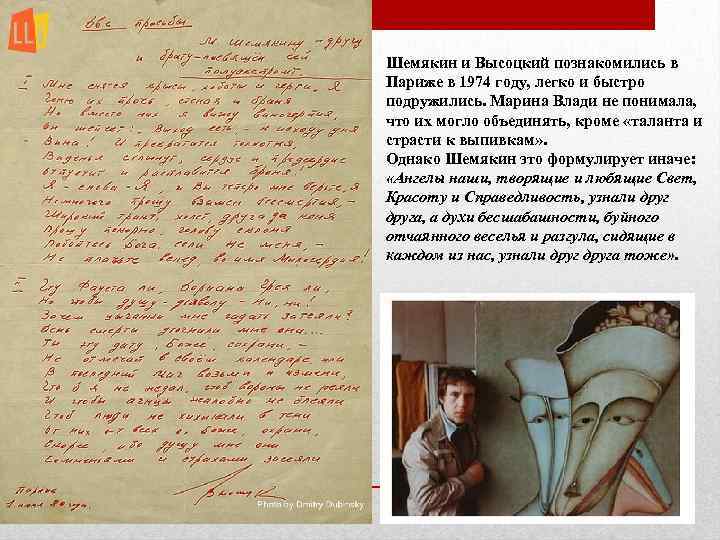 LL
Две просьбы
М Шемякину – другу
и брату – посвящен сей
полуэкспромт.
I Мне снятся крысы, хоботы и черти. Я
Гоню их прочь, стеная и браня
Но вместо них я вижу виночерпия,
Он шепчет: "Выход есть – к исходу дня
Вина! И прекратится толкотня,
Виденья схлынут, сердце и предсердие
Отпустит и расплавится броня!
Я – снова – Я, и Вы теперь мне верьте, я
Немногого прошу взамен бессмертия, –
Широкий тракт, холст, друга да коня
Прошу покорно, голову склоня
Побойтесь Бога, если не меня, –
Не плачьте вслед, во имя Милосердия!
II Чту Фауста ли, Дориана Грея ли,
Но чтобы душу – дьяволу – Ни, ни!
Зачем цыганки мне гадать затеяли?
День смерти уточнили мне они...
Ты эту дату, Боже, сохрани, –
Не отмечай в своём календаре или
В последний миг возьми и измени,
Чтоб я не ждал, чтоб вороны не реяли
И чтобы агнцы жалобно не блеяли
Чтоб люди не хихикали в тени
От них от всех о, Боже, охрани,
Скорее, ибо душу мне они
Сомненьями и страхами засеяли
Париж
1 июня 80 года.
Photo by Dmitry Dubinsky
Шемякин и Высоцкий познакомились в
Париже в 1974 году, легко и быстро
подружились. Марина Влади не понимала,
что их могло объединять, кроме «таланта и
страсти к выпивкам».
Однако Шемякин это формулирует иначе:
«Ангелы наши, творящие и любящие Свет,
Красоту и Справедливость, узнали друг
друга, а духи бесшабашности, буйного
отчаянного веселья и разгула, сидящие в
каждом из нас, узнали друг друга тоже».